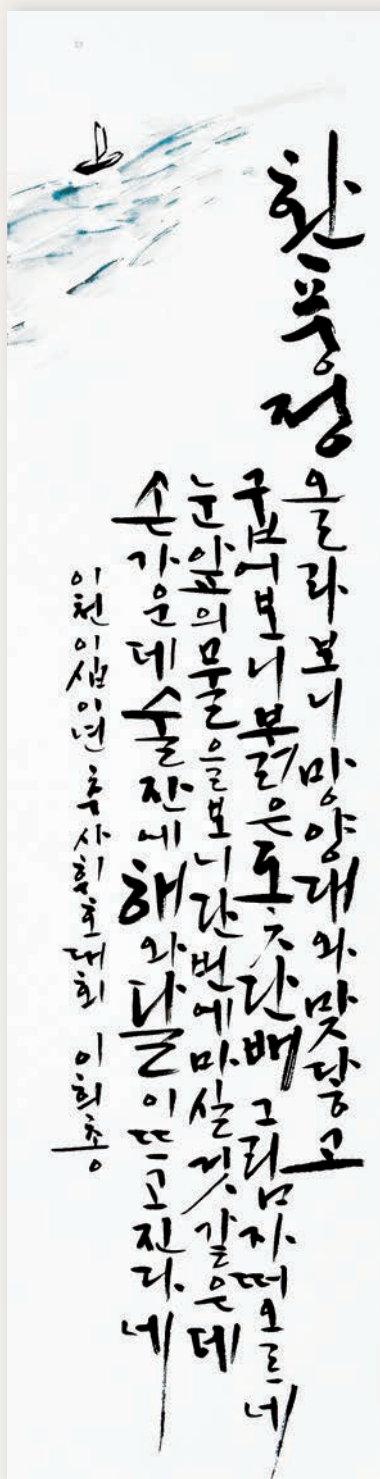 환풍정
올라보니 망양대와 맞닿고
굽어보니 붉은 돛단배 그림자 떠오르네
눈앞의 물을 보니 단번에 마실 것 같은데
손 가운데 술잔에 해와 달이 뜨고 진다네
이천이십이년 추사휘호대회 이희충